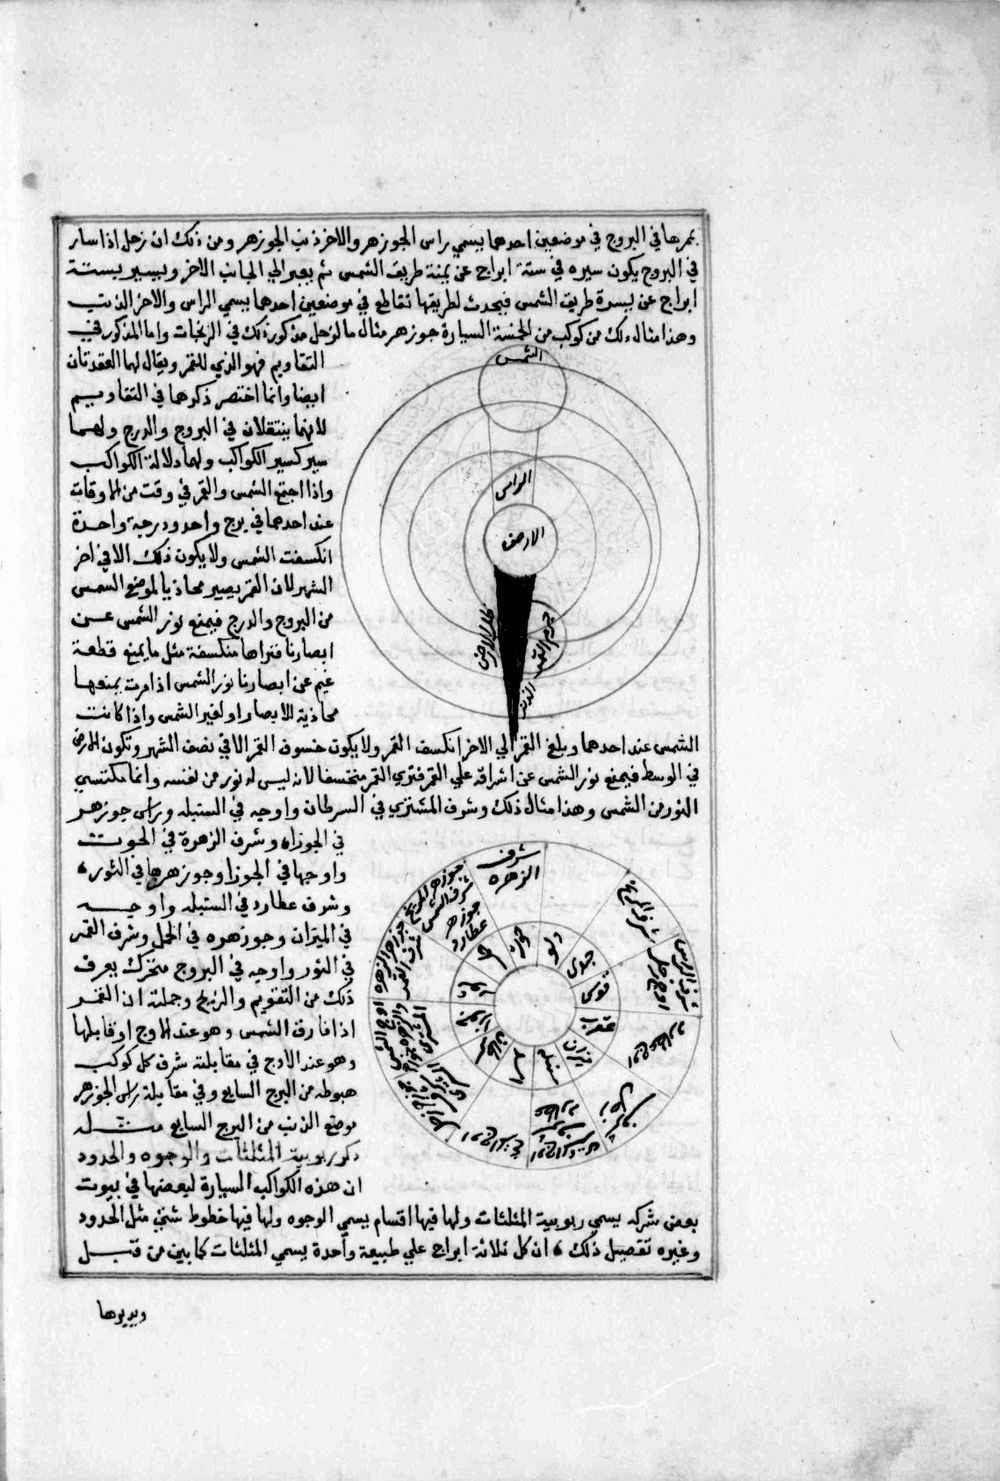 بمرها في البروج في موضعين احدهما يسمي راس الجوزهر والاخر ذنب الجوزهر ومن ذلك ان زحل اذا سار
في البروج يكون سيره في ستة ابراج عن يمنة طريقة الشمس ثم يعبر الي الجانب الاخر ويسير بستة
ابراج عن يسرة طريق الشمس فيحدث لطريقها تقاطع في موضعين احدهما يسمي الراس والاخر الذنب
وهذا مثال ذلك من كوكب من الخمسة السيارة جوزهر مثال ما لزحل مذكور ذلك في الزيجات واما المذكور في
التقاويم فهو الذي للقمر ويقال لهما العقدتان
ايضا وانما اختصر ذكرهما في التقاويم
لانهما ينتقلان في البروج والدرج ولهما
سير كسير الكواكب ولهما دلالة الكواكب
واذا اجتمع الشمس والقمر في وقت من الاوقات
عند احدهما في برج واحد ودرجة واحدة
انكسفت الشمس ولا يكون ذلك الا في اخر
الشهر لان القمر يصير محاذيا لموضع الشمس
من البروج والدرج فيمنع نور الشمس عن
ابصارنا فنراها منكسفة مثل ما يمنع قطعة
غيم عن ابصارنا نور الشمس اذا مرت بمنعها
محاذية الابصار او لغير الشمس واذا كانت
الشمس عند احدهما وبلغ القمر الي الاخر انكسف القمر ولا يكون خسوف القمر الا في نصف الشهر وتكون الارض
في الوسط فيمنع نور الشمس عن اشراقه علي القمر فتري القمر منخسفا لانه ليس له نور من نفسه وانما مكتسي
النور من الشمس وهذا مثال ذلك وشرف المشتري في السرطان واوجه في السنبله وراس جوزهر
في الجوزاه وشرف الزهرة في الحوت
واوجها في الجوزا وجوزهرها في الثور
وشرف عطارد في السنبله واوجه
في الميزان وجوزهره في الحمل وشرف القمر
في الثور واوجه في البروج متحرك يعرف
ذلك من التقويم والزيج وجملته ان القمر
اذا فارق الشمس وهو عند الاوج اوقابلها
وهو عند الاوج في مقابلته شرف كل كوكب
هبوطه من البرج السابع وفي مقابلة راس الجوزهر
موضع الذنب من البرج السابع مثله
ذكر ربوبية المثلثات والوجوه والحدود
ان هذه الكواكب السيارة لبعضها في بيوت
بعض شركه يسمي ربوبية المثلثات ولها فيها اقسام يسمي الوجوه ولها فيها خطوط شتي مثل الحدود
وغيره تفصيل ذلك ان كل ثلاثة ابراج علي طبيعة واحدة يسمي المثلثات كما بين من قبل
ويديوها
الشمس
الراس
الارض
ظل الارض
جرم القمر
الذنب
شرف الزهره
جوزهر المريخ
شرف الشمس
جوزهر عطارد
شرف القمر
شرف المريخ
حوت
دلو
جدي
قوس
عقرب
ميزان
سنبله
اسد